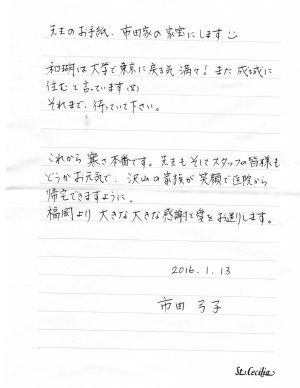 先生のお手紙、市田家の家宝にします
和瑚は大学で東京に戻る気満々！また成城に
住むと言っています(笑)
それまで、待っていて下さい。
これから寒さ本番です。先生もそしてスタッフの皆様も
どうかお元気で、沢山の家族が笑顔で医院から
帰宅できますように。
福岡より大きな大きな感謝と愛をお送りします。
2016.1.13
市田 弓子
St. Cecilia